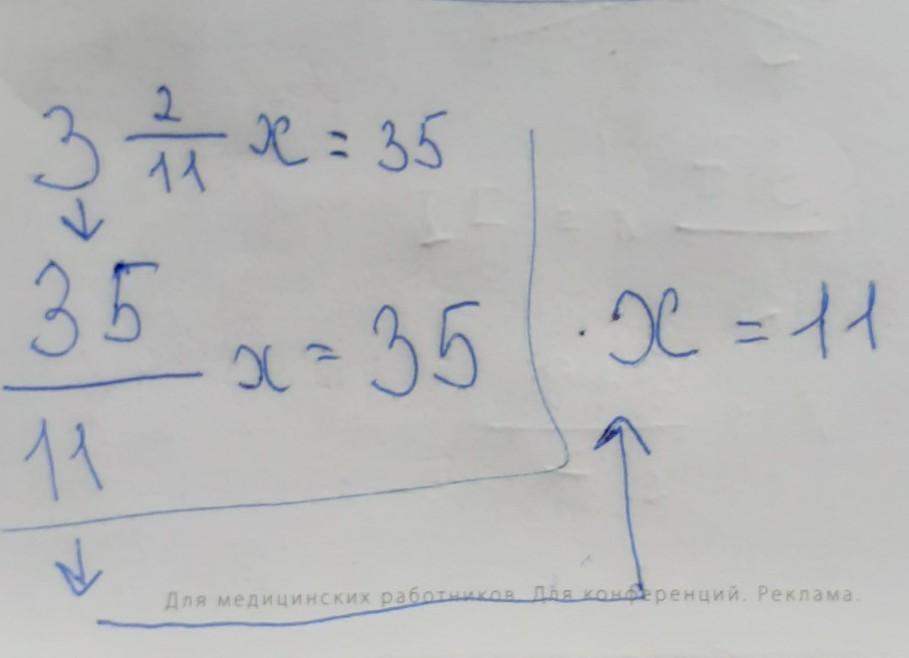 3 2/11 x = 35
35/11 x = 35
· x = 11
Для медицинских работников. Для конференций. Реклама.